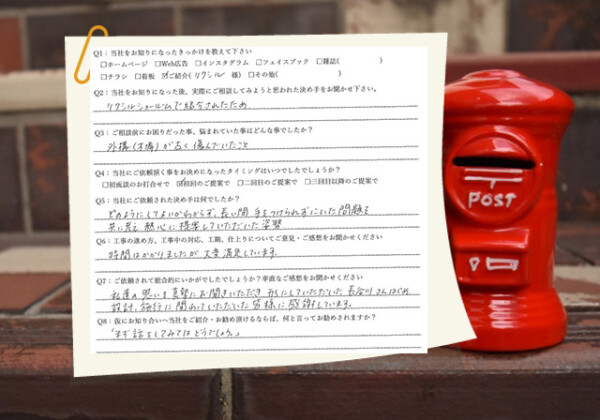 Q1：当社をお知りになったきっかけを教えて下さい
□ホームページ □Web広告 □インスタグラム □フェイスブック □雑誌( )
□チラシ □看板 ☑ご紹介(リクシル 様) □その他( )
Q2：当社をお知りになった後、実際にご相談してみようと思われた決め手をお聞かせ下さい。
リクシルショールームで紹介されたため
Q3：ご相談前にお困りだった事、悩まれていた事はどんな事でしたか？
外構(木塀)が古く傷んでいたこと
Q4：当社にご依頼頂く事をお決めになったタイミングはいつでしたでしょうか？
□初面談のお打合せで ☑初回のご提案で □二回目のご提案で □三回目以降のご提案で
Q5：当社にご依頼された決め手は何でしたか？
どのようにしてよいかわからず、長い間手をつけられずにいた問題を
共に考え 熱心に提案していただいた姿勢
Q6：工事の進め方、工事中の対応、工期、仕上りについてご意見・ご感想をお聞かせください
時間はかかりましたが 大変満足しています。
Q7：ご依頼されて総合的にいかがでしたでしょうか？率直なご感想をお聞かせください
私達の思いを真摯にお聞きいただき 形にしていただいた 長谷川さんはじめ
設計、施行に関わっていただいた皆様に感謝しています。
Q8：仮にお知り合いへ当社をご紹介・お勧め頂けるならば、何と言ってお勧めされますか？
「まず話をしてみてはどうでしょう。」
POST